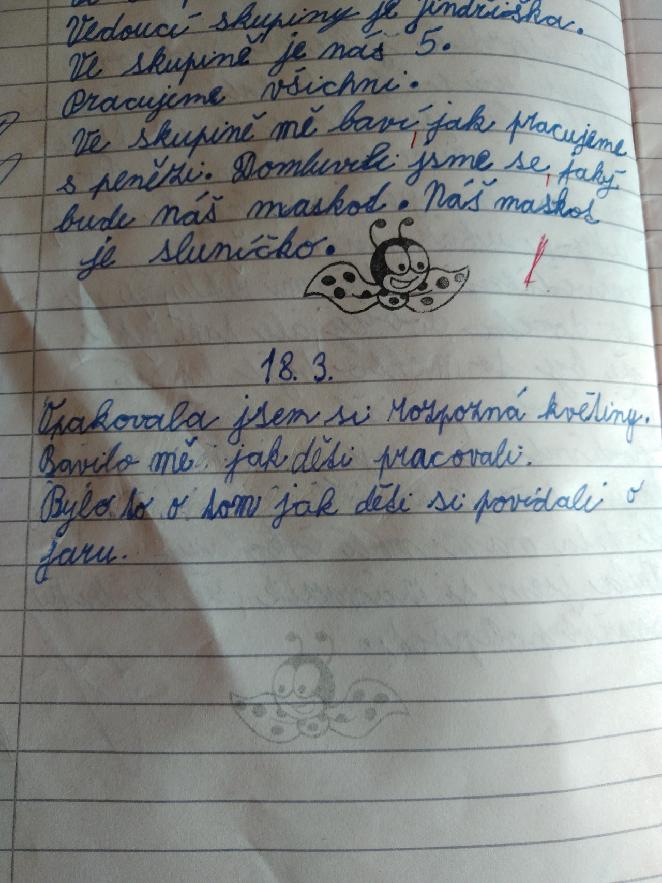 Vedoucí skupiny je jindřiška.
Ve skupině je náš 5.
Pracujeme všichni.
Ve skupině mě baví, jak pracujeme
s penězi. Domluvili jsme se, jaký
bude náš maskot. Náš maskot
je sluníčko.
18. 3.
Opakovala jsem si rozpozná květiny.
Bavilo mě jak děti pracovali.
Bylo to o tom jak děti si povídali o
jaru.